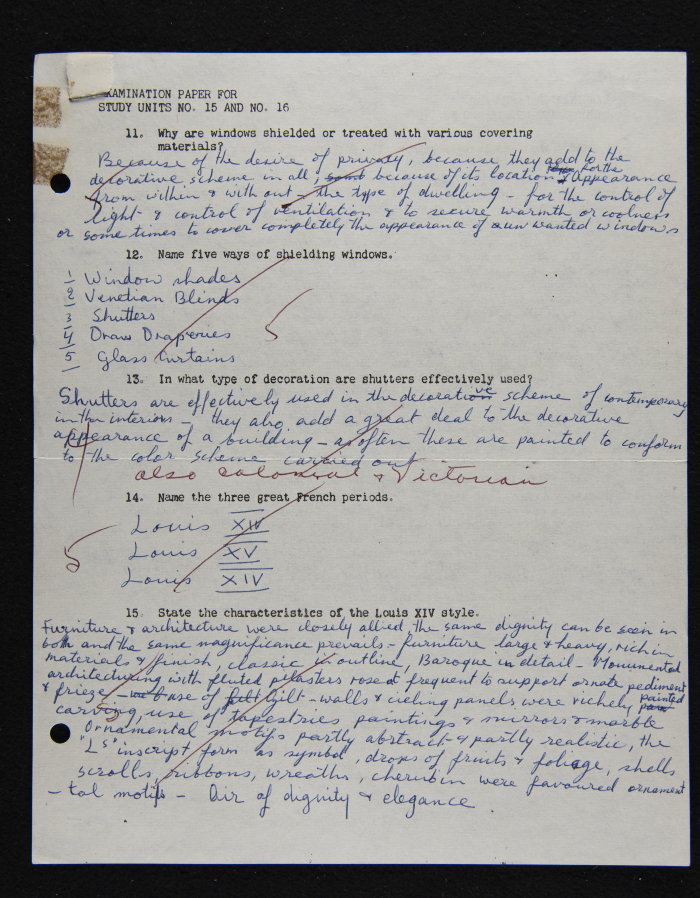 XAMINATION PAPER FOR
STUDY UNITS NO. 15 AND NO. 16
11. Why are windows shielded or treated with various covering
materials?
Because of the desire of privacy, because they add to the
decorative scheme in all, because of its location & for the appearance
from within & with out - the type of dwelling - for the control of
light & control of ventilation & to secure warmth or coolness
or some times to cover completely the appearance of a un wanted windows
12. Name five ways of shielding windows.
1 Window shades
2 Venetian Blinds
3 Shutters
4 Draw Draperies
5 Glass Curtains
13. In what type of decoration are shutters effectively used?
Shutters are effectively used in the decorative scheme of contemporary
in the interiors - they also add a great deal to the decorative
appearance of a building - as often these are painted to conform
to the color scheme carried out
also colonial & Victorian
14. Name the three great French periods.
Louis XIV
5 Louis XV
Louis XIV
15. State the characteristics of the Louis XIV style.
Furniture & architecture were closely allied, the same dignity can be seen in
both and the same magnificance prevails - furniture large & heavy, rich in
material & finish, classic in outline, Baroque in detail - Monumental
with fluted pilasters used frequent to support ornate pediment
& frieze - base of gilt - walls & cieling panels were richely painted
carving, use of tapestries paintings & mirrors & marble
Ornamental motifs partly abstract & partly realistic, the
"Ls" inscript form as symbol, drops of fruits & foliage, shells
scrolls, ribbons, wreaths, cherubin were favoured ornament
- tal motifs - air of dignity & elegance